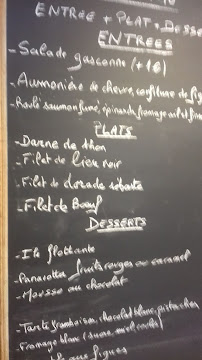 ENTRÉE + PLAT + DESSE
ENTREES
- Salade gasconne (+1€)
- Aumonière de chèvre, confiture de fig
- Roulé saumon fumé, épinards, fromage
PLATS
- Darne de thon
- Filet de lieu noir
- Filet de dorade sébaste
- Filet de Bœuf
DESSERTS
- Ile flottante
- Panacotta fruits rouges ou caramel
- Mousse au chocolat
- Tarte framboises, chocolat blanc, pistaches
- Fromage blanc (sucre, miel, coulis)
aux figues